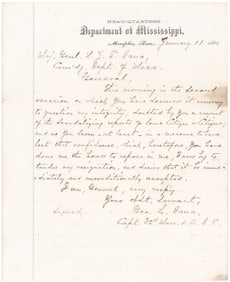 HEAD-QUARTERS
Department of Mississippi,
Memphis, Tenn. January 21, 186
Maj. Genl. N. J. T. Dana,
Com'dg Dept. of Miss.
General,
This morning is the second
occasion on which you have deemed it necessary
to question my integrity, doubtless by a
of the scandalizing reports to
and as you seem at least in a measure to have
lost that confidence, which, heretofore, you have
done me the honor to repose in me, I now beg to
tender my resignation, and desire that it be imme-
diately and unconditionally accepted.
I am, General, very resp'y
Your Obt. Servant,
Signed, Geo. L. Dana,
Capt. 32d Mass. & A.D.C.